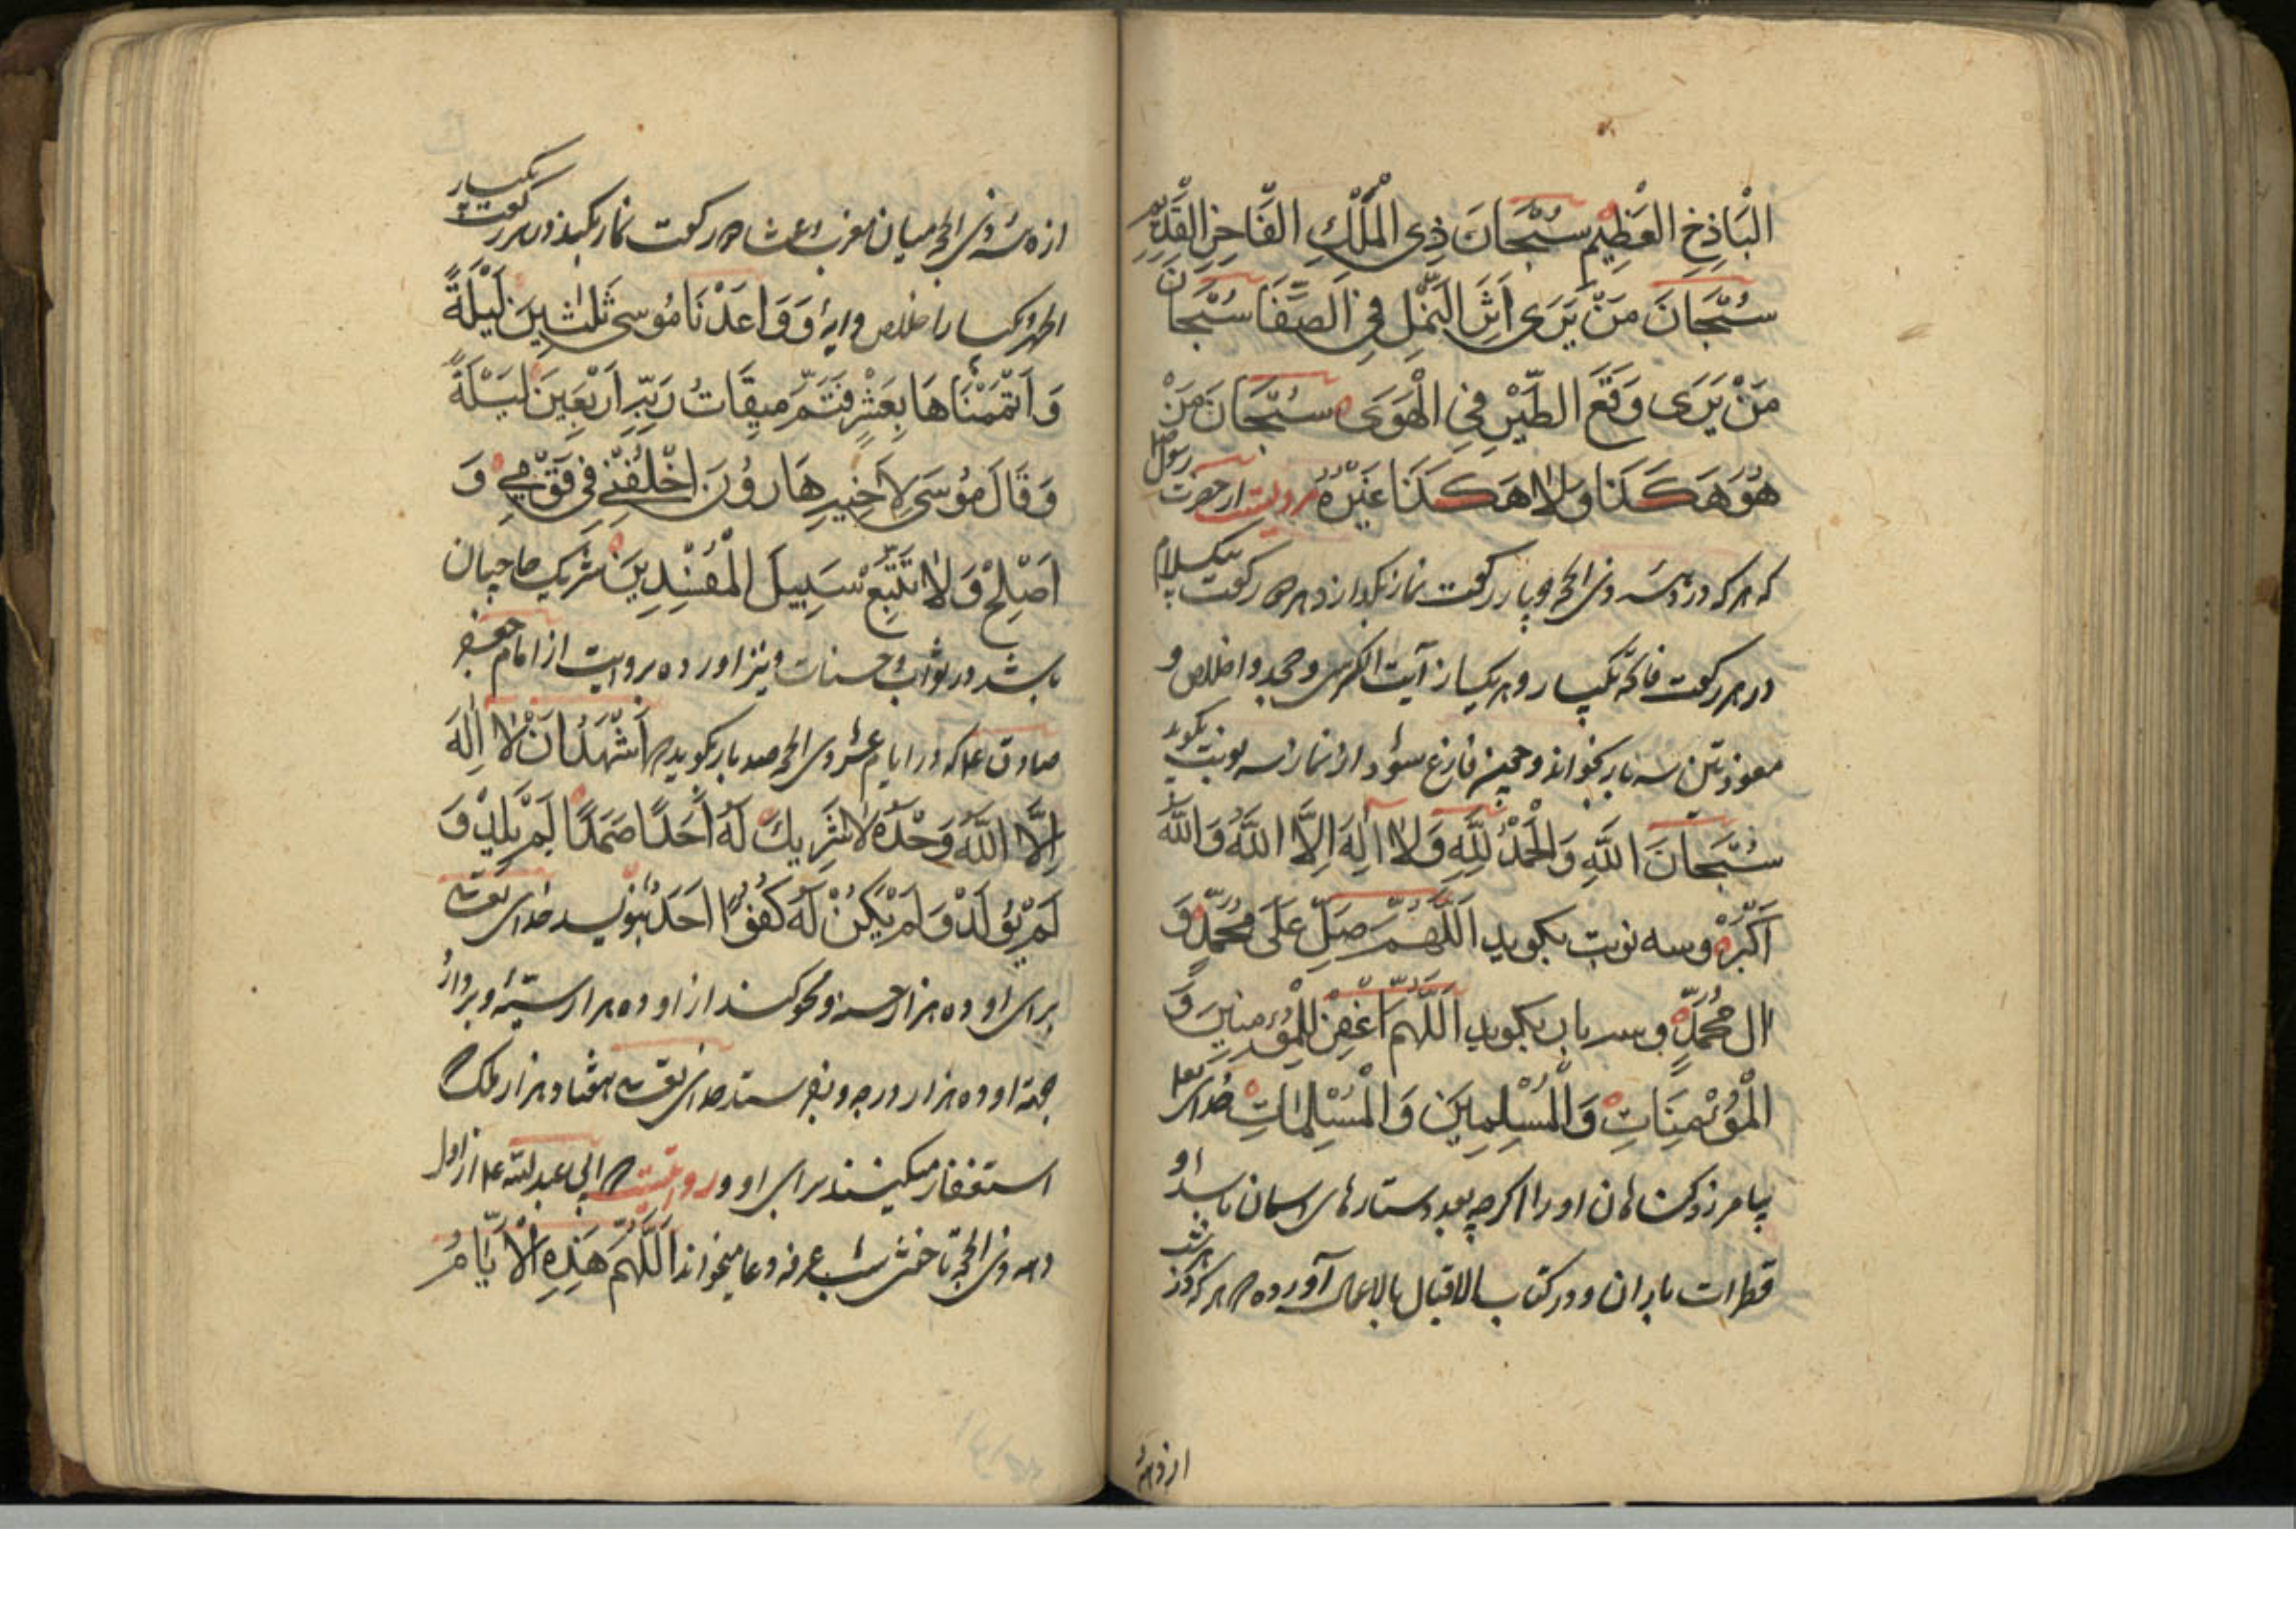 الْبَاذِخِ الْعَظِيمِ سُبْحَانَ ذِي الْمُلْكِ الْفَاخِرِ الْقَدِيمِ
سُبْحَانَ مَنْ يَرَى أَثَرَ النَّمْلِ فِي الصَّفَا سُبْحَانَ
مَنْ يَرَى وَقْعَ الطَّيْرِ فِي الْهَوَى سُبْحَانَ مَنْ
هُوَ هَكَذَا وَلَا هَكَذَا غَيْرُهُ مرویست از حضرت رسول صلعم
که هر که در دهه ذی الحجه چهار رکعت نماز بگذارد و هر دو رکعت بیکسلام
در هر رکعت فاتحه یکبار و هر یک از آیت الکرسی و جحد و اخلاص و
معوذتین سه بار بخواند و چون فارغ شود از نماز سه نوبت بگوید
سُبْحَانَ اللَّهِ وَالْحَمْدُ لِلَّهِ وَلَا إِلَهَ إِلَّا اللَّهُ وَاللَّهُ
أَكْبَرُ و سه نوبت بگوید اَللَّهُمَّ صَلِّ عَلَى مُحَمَّدٍ وَ
الِ مُحَمَّدٍ و سه بار بگوید اَللَّهُمَّ اغْفِرْ لِلْمُؤْمِنِينَ وَ
الْمُؤْمِنَاتِ وَالْمُسْلِمِينَ وَالْمُسْلِمَاتِ خدای تعالی
بیامرزد گناهان او را اگر چه بعدد ستارهای اسمان باشد و
قطرات باران و در کتاب الاقبال بالاعمال آورده که هر که در هر شب
از دهه
از دهه ذی الحجه میان مغرب و عشا دو رکعت نماز بکند در هر رکعت یکبار
الحمد و یکبار اخلاص و ایه وَوَاعَدْنَا مُوسَى ثَلٰثِينَ لَيْلَةً
وَأَتْمَمْنَاهَا بِعَشْرٍ فَتَمَّ مِيقَاتُ رَبِّهِ أَرْبَعِينَ لَيْلَةً
وَقَالَ مُوسَى لِأَخِيهِ هَارُونَ اخْلُفْنِي فِي قَوْمِي وَ
أَصْلِحْ وَلَا تَتَّبِعْ سَبِيلَ الْمُفْسِدِينَ شریک حاجیان
باشد در ثواب و حسنات و نیز اورده بروایت از امام جعفر
صادق ع م که در ایام عشر ذی الحجه صد بار بگوید که أَشْهَدُ أَنْ لَا إِلَهَ
إِلَّا اللَّهُ وَحْدَهُ لَا شَرِيكَ لَهُ أَحَدًا صَمَدًا لَمْ يَلِدْ وَ
لَمْ يُولَدْ وَلَمْ يَكُنْ لَهُ كُفُوًا أَحَدٌ بنویسد خدای تعالی
برای او ده هزار حسنه و محو کند از او ده هزار سیئه و بردارد
جهة او ده هزار درجه و بفرستد خدای تعالی هفتاد هزار ملک که
استغفار میکنند برای او و روایتست که ابی عبدالله ع م از اول
دهه ذی الحجه تا شب عرفه دعا میخواند اَللَّهُمَّ هَذِهِ الْأَيَّامُ